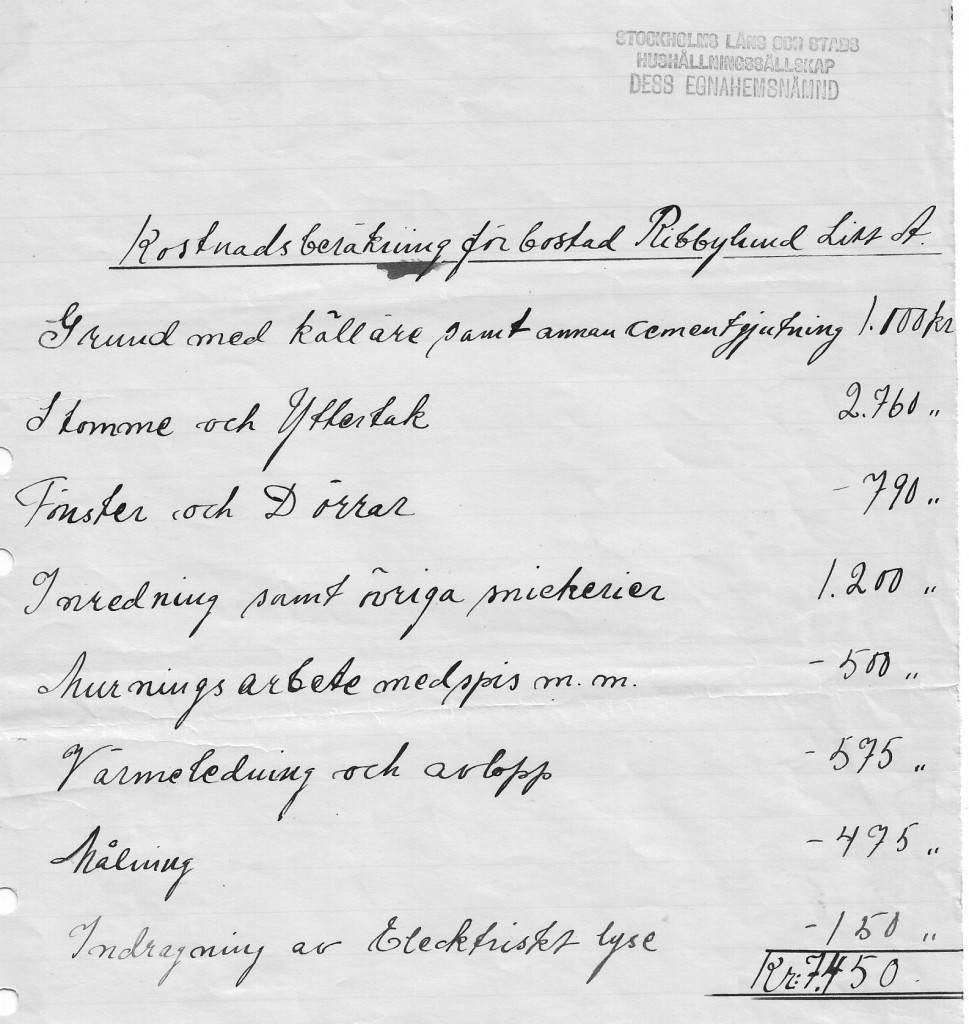 STOCKHOLMS LÄNS OCH STADS
HUSHÅLLNINGSSÄLLSKAP
DESS EGNAHEMSNÄMND
Kostnadsberäkning för bostad Ribbylund Litt A.
Grund med källare samt annan cementgjutning 1.100 kr
Stomme och Yttertak 2.760 "
Fönster och Dörrar - 790 "
Inredning samt övriga snickerier 1.200 "
Murningsarbete med spis m.m. - 500 "
Värmeledning och avlopp - 575 "
Målning - 475 "
Indragning av Elecktriskt lyse - 150 "
Kr: 7.450.